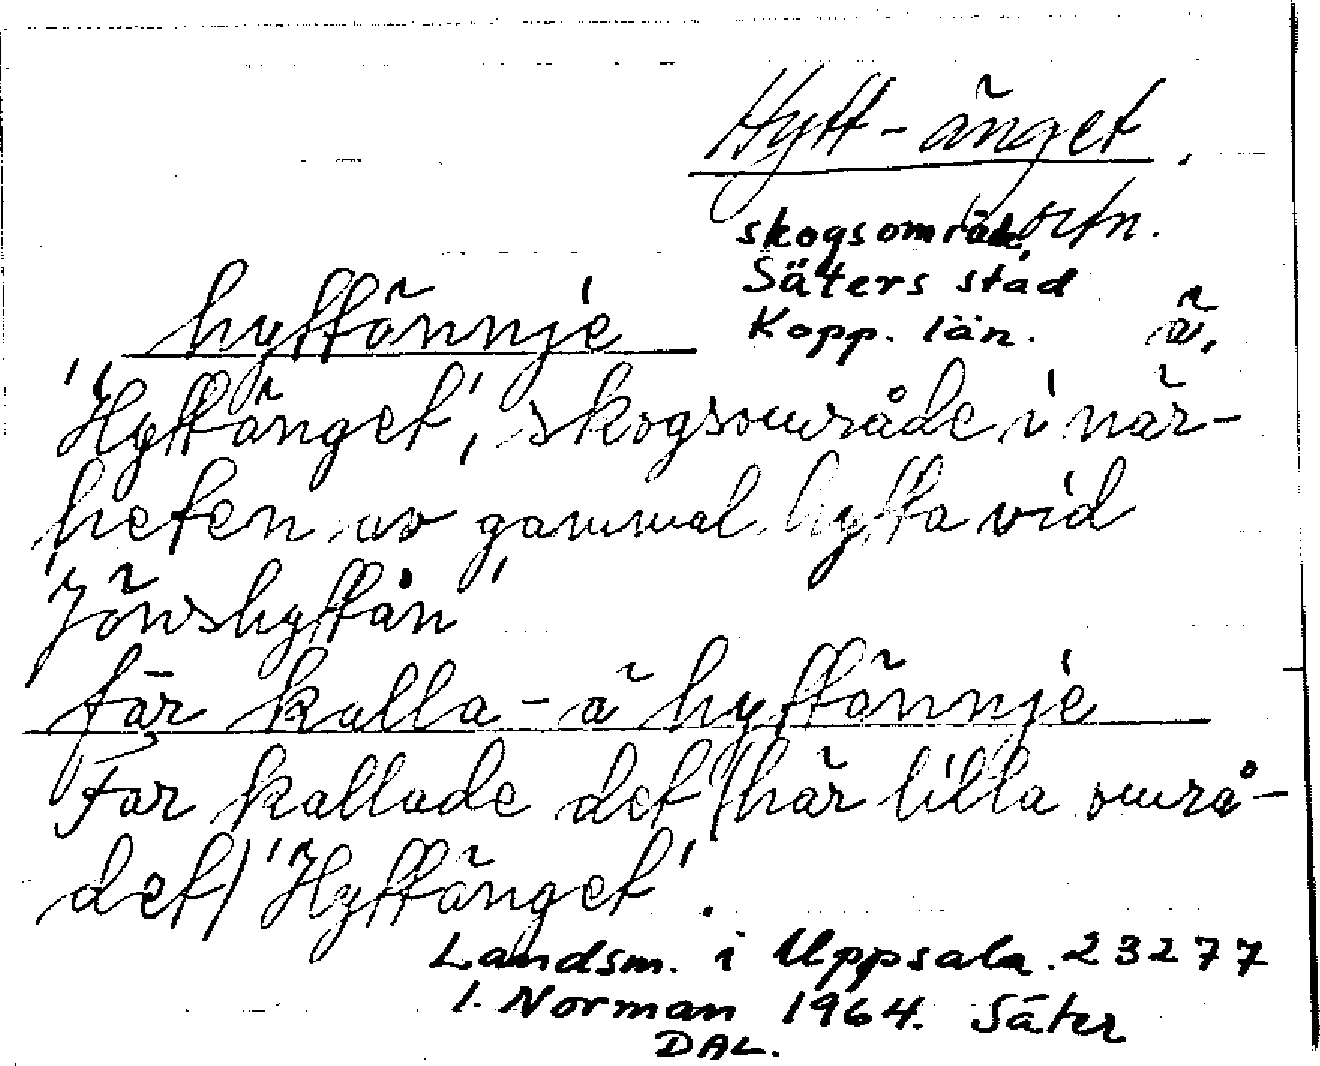 Hytt-änget.
ortn.
skogsområde,
Säters stad
Kopp. län.
ä,
hyttännje
'Hyttänget', skogsområde i när-
heten av gammal hytta vid
'Jönshyttån'
far kalla-ä hyttännje
Far kallade det (här lilla områ-
det) 'Hyttänget'.
Landsm. i Uppsala. 23277
I. Norman 1964. Säter
DAL.